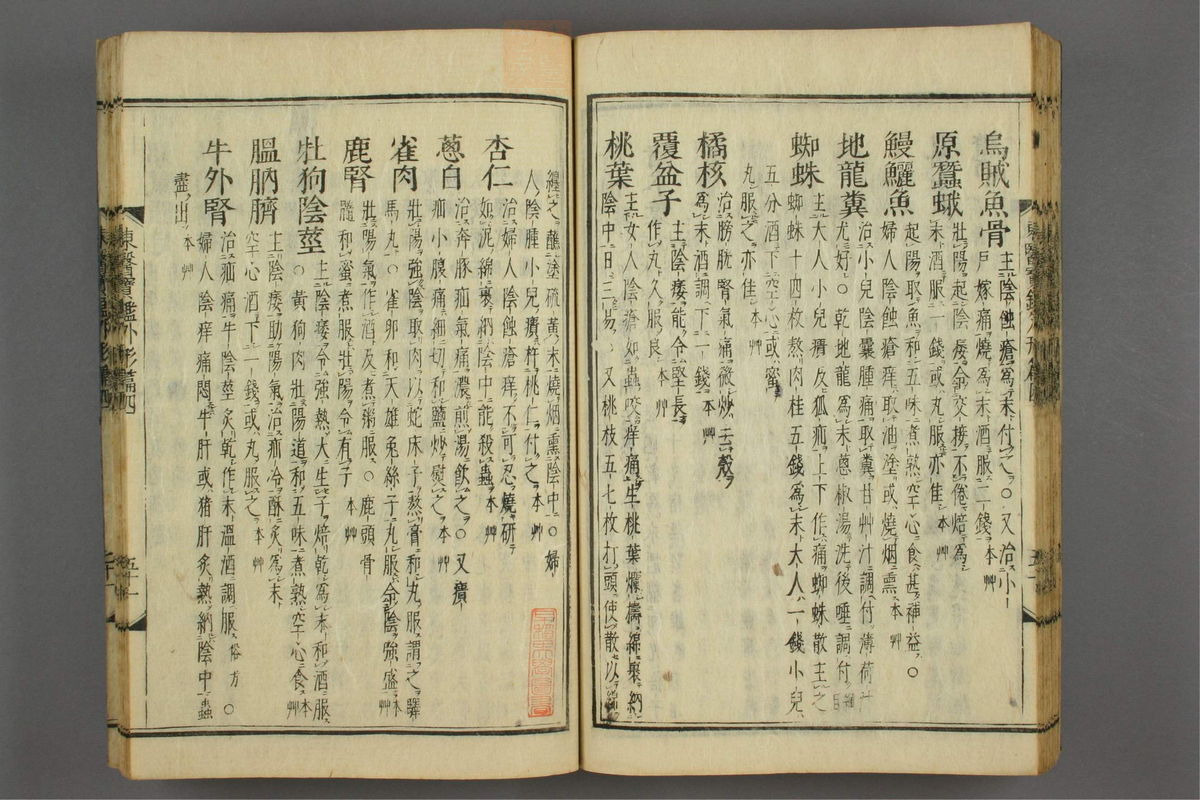 烏賊魚骨 主陰蝕瘡爲末付之○又治小
戶嫁痛燒爲末酒服二錢本艸
原蠶蛾 壯陽起陰痿令交接不倦焙爲
末酒服一錢或丸服亦佳本艸
鰻鱺魚 起陽取魚和五味煮熟空心食甚補益○
婦人陰蝕瘡痒取油塗或燒烟熏本艸
地龍糞 治小兒陰囊腫痛取糞甘艸汁調付薄荷汁
尤好○乾地龍爲末蔥椒湯洗後唾調付
蜘蛛 主大人小兒㿗及狐疝上下作痛蜘蛛散主之
蜘蛛十四枚熬肉桂五錢爲末大人一錢小兒
五分酒下空心或蜜
丸服之亦佳本艸
橘核 治膀胱腎氣痛微炒去殼
爲末酒調下一錢本艸
覆盆子 主陰痿能令堅長
作丸久服良本艸
桃葉 主女人陰瘡如蟲咬痒痛生桃葉爛擣綿裹納
陰中日三易○又桃枝五七枚打頭使散以綿
纏之蘸塗硫黃末燒烟熏陰中○婦
人陰腫小兒㿗杵桃仁付之本艸
杏仁 治婦人陰蝕瘡痒不可忍燒研
如泥綿裹納陰中能殺蟲本艸
蔥白 治奔豚疝氣痛濃煎湯飮之○又㿗
疝小腹痛細切和鹽炒熨之本艸
雀肉 壯陽強陰取肉以蛇床子熬膏和丸服謂之驛
馬丸○雀卵和天雄兔絲子丸服令陰強盛本艸
鹿腎 壯陽氣作酒及煮粥服○鹿頭骨
髓和蜜煮服壯陽令有子本艸
牡狗陰莖 主陰痿令強熱大生子焙乾爲末和酒服
○黃狗肉壯陽道和五味煮熟空心食本艸
膃肭臍 主陰痿助陽氣治疝冷酥炙爲末
空心酒下一錢或丸服之本艸
牛外腎 治疝痛牛陰莖炙乾作末溫酒調服俗方○
婦人陰痒痛悶牛肝或猪肝炙熱納陰中蟲
盡出本艸